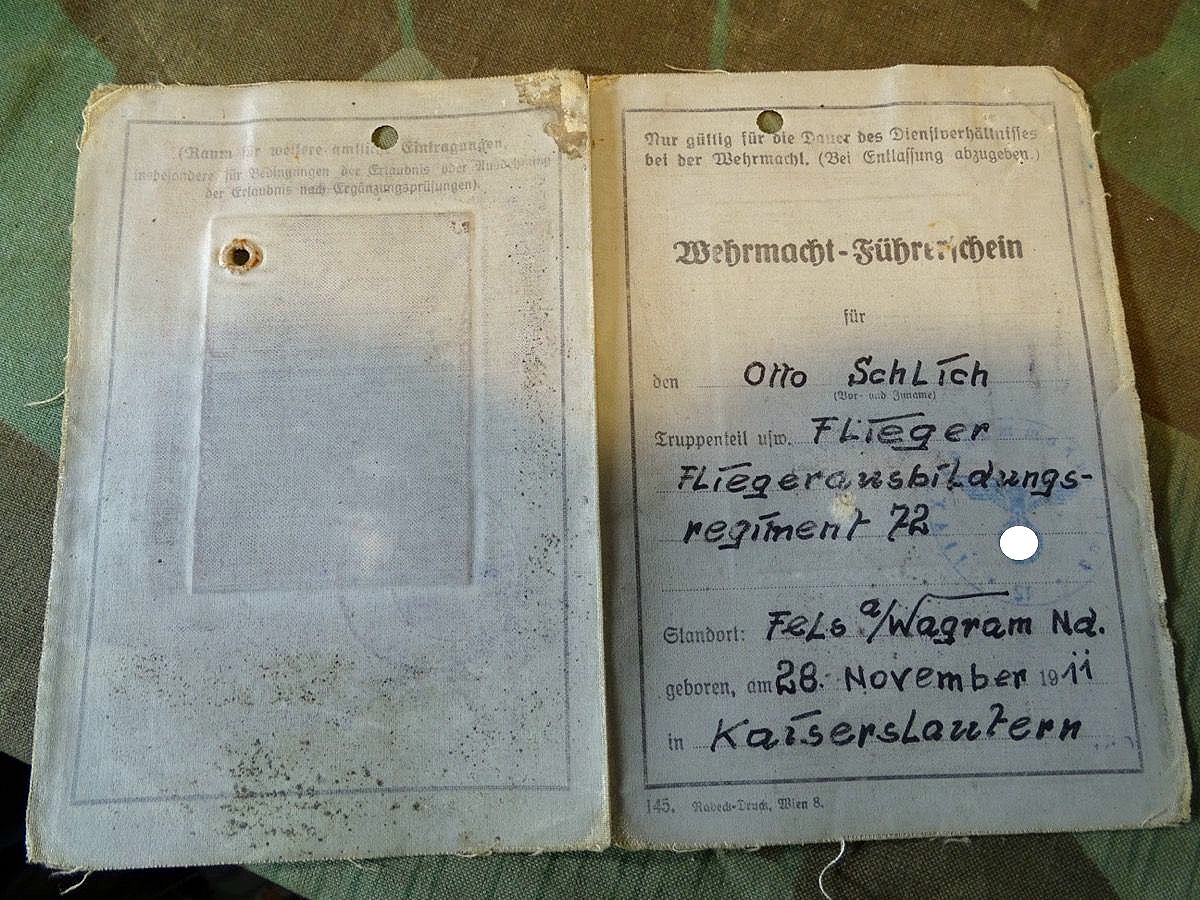 (Raum für weitere amtliche Eintragungen,
insbesondere für Bedingungen der Erlaubnis oder Ausdehnung
der Erlaubnis nach Ergänzungsprüfungen).
Nur gültig für die Dauer des Dienstverhältnisses
bei der Wehrmacht. (Bei Entlassung abzugeben.)
Wehrmacht-Führerschein
für
den Otto Schlich
(Vor- und Zuname)
Truppenteil usw. Flieger
Fliegerausbildungs-
regiment 72
Standort: Fels a/Wagram Nd.
geboren, am 28. November 1911
in Kaiserslautern
145. Radeck-Druck, Wien 8.